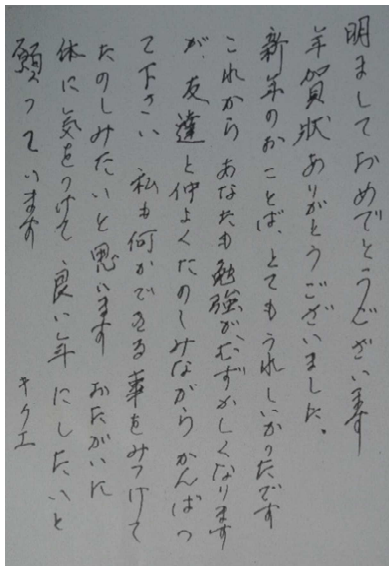 明ましておめでとうございます
年賀状ありがとうございました。
新年のおことば、とてもうれしいかったです
これからあなたも勉強がむずかしくなります
が、友達と仲よくたのしみながらがんばっ
て下さい 私も何かできる事をみつけて
たのしみたいと思います おたがいに
体に気をつけて良い年にしたいと
願っています キクエ